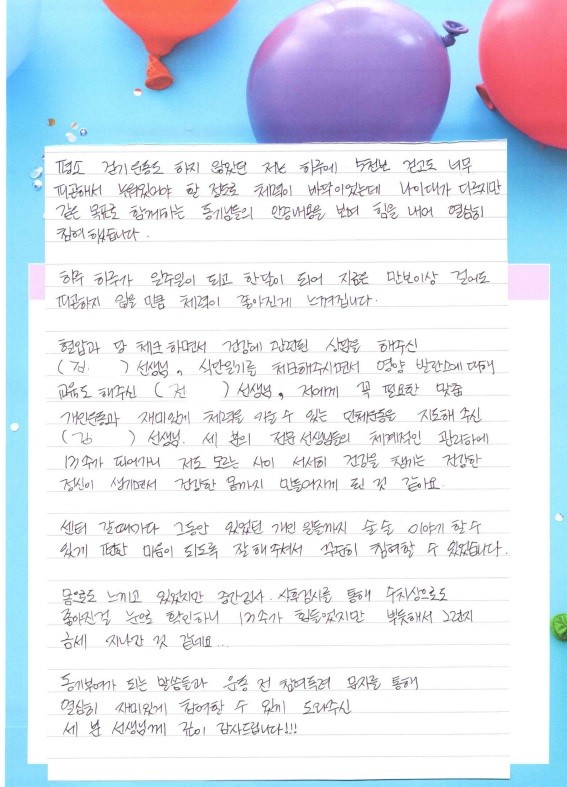 평소 걷기운동도 하지 않았던 저는 하루에 5천보 걷고도 너무
피곤해서 누워있어야 할 정도로 체력이 바닥이었는데 나이대가 다르지만
같은 목표로 함께하는 동기님들의 인증내용을 보며 힘을 내어 열심히
참여 했습니다.
하루 하루가 일주일이 되고 한달이 되어 지금은 만보이상 걸어도
피곤하지 않을 만큼 체력이 좋아진게 느껴집니다.
혈압과 당 체크 하면서 건강에 관련된 상담을 해주신
(김 ) 선생님, 식단일기를 체크해주시면서 영양 발란스에 대해
교육도 해주신 (전 ) 선생님, 저에게 꼭 필요한 맞춤
개인운동과 재미있게 체력을 키울 수 있는 단체운동을 지도해 주신
(김 ) 선생님. 세 분의 전문 선생님들의 체계적인 관리하에
12주가 되어가니 저도 모르는 사이 서서히 건강을 챙기는 건강한
정신이 생기면서 건강한 몸까지 만들어지게 된 것 같아요.
센터 갈때마다 그동안 있었던 개인 일들까지 술술 이야기 할 수
있게 편한 마음이 되도록 잘 해주셔서 꾸준히 참여할 수 있었습니다.
몸으로도 느끼고 있었지만 중간검사. 사후검사를 통해 수치상으로도
좋아진걸 눈으로 확인하니 12주가 힘들었지만 뿌듯해서 그런지
금세 지나간 것 같네요...
동기부여가 되는 말씀들과 운동 전 참여독려 문자를 통해
열심히 재미있게 참여할 수 있게 도와주신
세 분 선생님께 깊이 감사드립니다!!!